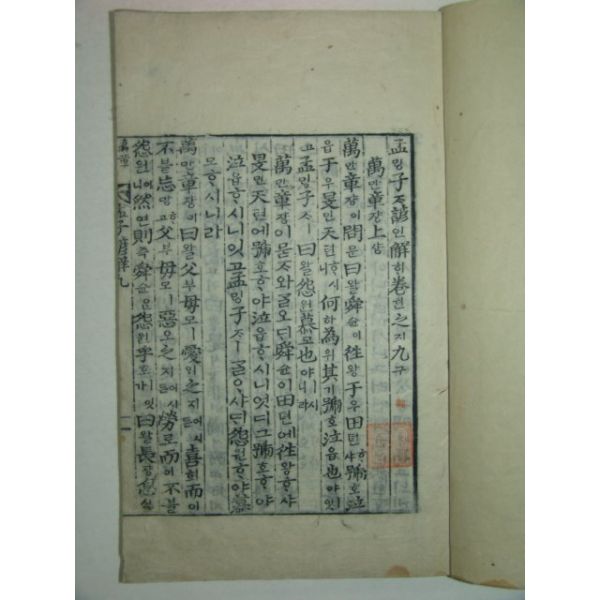 孟ᄆᆡᆼ子ᄌᆞ諺언解ᄒᆡ卷권之지九구
萬만章쟝上샹
萬만章쟝이問문曰왈舜슌이往왕于우田뎐ᄒᆞ샤號호泣
읍于우旻민天텬ᄒᆞ시니何하爲위其기號호泣읍也야ㅣ잇
고孟ᄆᆡᆼ子ᄌᆞㅣ曰왈怨원慕모也야ㅣ시니라
萬만章쟝이묻ᄌᆞ와ᄀᆞᆯ오ᄃᆡ舜슌이田뎐에往왕ᄒᆞ샤
旻민天텬에號호ᄒᆞ야泣읍ᄒᆞ시니엇디그號호ᄒᆞ야
泣읍ᄒᆞ시니잇고孟ᄆᆡᆼ子ᄌᆞㅣᄀᆞᆯᄋᆞ샤ᄃᆡ怨원ᄒᆞ야慕
모ᄒᆞ시니라
萬만章쟝이曰왈父부母모ㅣ愛ᄋᆡ之지어시든喜희而이
不블忘망ᄒᆞ고父부母모ㅣ惡오之지어시든勞로而이不블
怨원이니然연則즉舜슌은怨원乎호ㅣ잇가曰왈長쟝息식
萬章
孟子諺解九
一